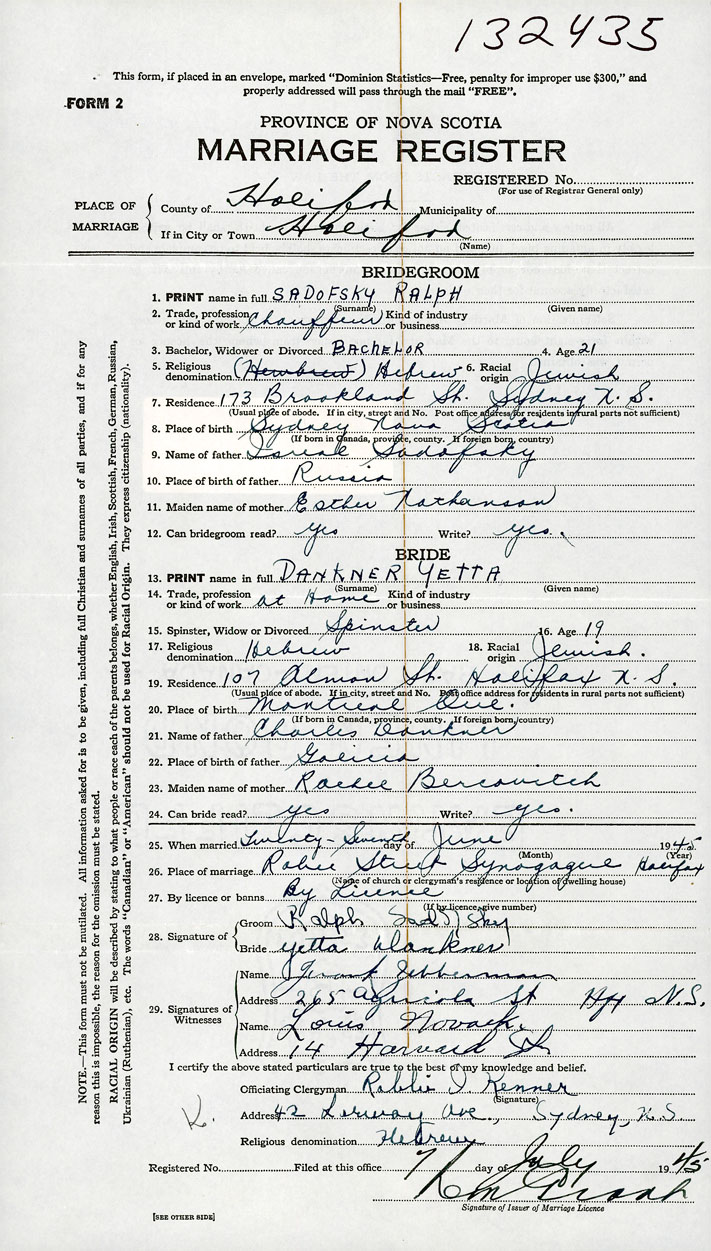 132435
This form, if placed in an envelope, marked “Dominion Statistics—Free, penalty for improper use $300,” and
properly addressed will pass through the mail “FREE”.
FORM 2
PROVINCE OF NOVA SCOTIA
MARRIAGE REGISTER
REGISTERED No.
(For use of Registrar General only)
PLACE OF MARRIAGE
County of Halifax Municipality of
If in City or Town Halifax
(Name)
BRIDEGROOM
1. PRINT name in full SADOFSKY RALPH
(Surname) (Given name)
2. Trade, profession or kind of work Chauffeur Kind of industry or business
3. Bachelor, Widower or Divorced BACHELOR 4. Age 21
5. Religious denomination (Hewbrew) Hebrew 6. Racial origin Jewish
7. Residence 173 Brookland St. Sydney N.S.
(Usual place of abode. If in city, street and No. Post office address for residents in rural parts not sufficient)
8. Place of birth Sydney Nova Scotia
(If born in Canada, province, county. If foreign born, country)
9. Name of father Sadofsky
10. Place of birth of father Russia
11. Maiden name of mother Esther Nathanson
12. Can bridegroom read? yes Write? yes.
BRIDE
13. PRINT name in full DANKNER YETTA
(Surname) (Given name)
14. Trade, profession or kind of work at Home Kind of industry or business
15. Spinster, Widow or Divorced Spinster 16. Age 19
17. Religious denomination Hebrew 18. Racial origin Jewish.
19. Residence 107 Almon St. Halifax N.S.
(Usual place of abode. If in city, street and No. Post office address for residents in rural parts not sufficient)
20. Place of birth Montreal Que.
(If born in Canada, province, county. If foreign born, country)
21. Name of father Charles Dankner
22. Place of birth of father Galicia
23. Maiden name of mother Rachel Bercovitch
24. Can bride read? yes Write? yes.
25. When married Twenty-Seventh day of June 1945
(Month) (Year)
26. Place of marriage Robie Street Synagogue Halifax
(Name of church or clergyman's residence or location of dwelling house)
27. By licence or banns By Licence
(If by licence, give number)
28. Signature of
Groom Ralph Sadofsky
Bride Yetta Dankner
29. Signatures of Witnesses
Name Frank
Address 265 Agricola St Hfx N.S.
Name Louis Novack.
Address 14 Harvard St
I certify the above stated particulars are true to the best of my knowledge and belief.
Officiating Clergyman Rabbi I. Kenner
(Signature)
Address 42 Ave., Sydney, N.S.
Religious denomination Hebrew
K.
Registered No. Filed at this office 7 day of July 1945
Signature of Issuer of Marriage Licence
[SEE OTHER SIDE]
NOTE.—This form must not be mutilated. All information asked for is to be given, including full Christian and surnames of all parties, and if for any
reason this is impossible, the reason for the omission must be stated.
RACIAL ORIGIN will be described by stating to what people or race each of the parents belongs, whether English, Irish, Scottish, French, German, Russian,
Ukrainian (Ruthenian), etc. The words “Canadian” or “American” should not be used for Racial Origin. They express citizenship (nationality).